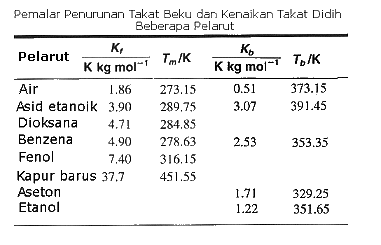 Pemalar Penurunan Takat Beku dan Kenaikan Takat Didih
Beberapa Pelarut
Pelarut Kf Tm/K Kb Tb/K
K kg mol⁻¹ K kg mol⁻¹
Air 1.86 273.15 0.51 373.15
Asid etanoik 3.90 289.75 3.07 391.45
Dioksana 4.71 284.85
Benzena 4.90 278.63 2.53 353.35
Fenol 7.40 316.15
Kapur barus 37.7 451.55
Aseton 1.71 329.25
Etanol 1.22 351.65